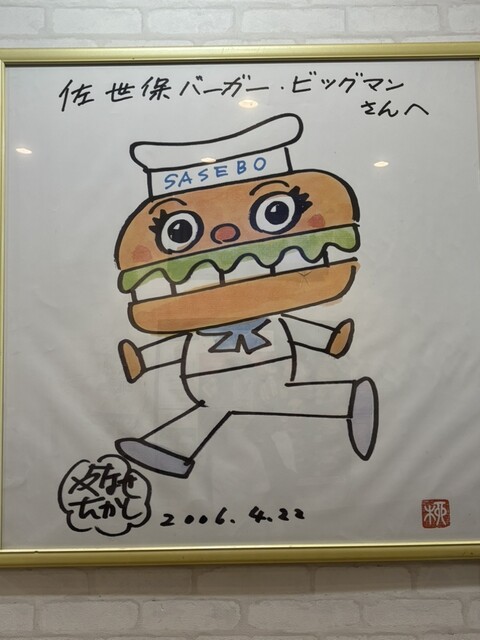 佐世保バーガー・ビッグマン
さんへ
SASEBO
やなせ
たかし
2006.4.22